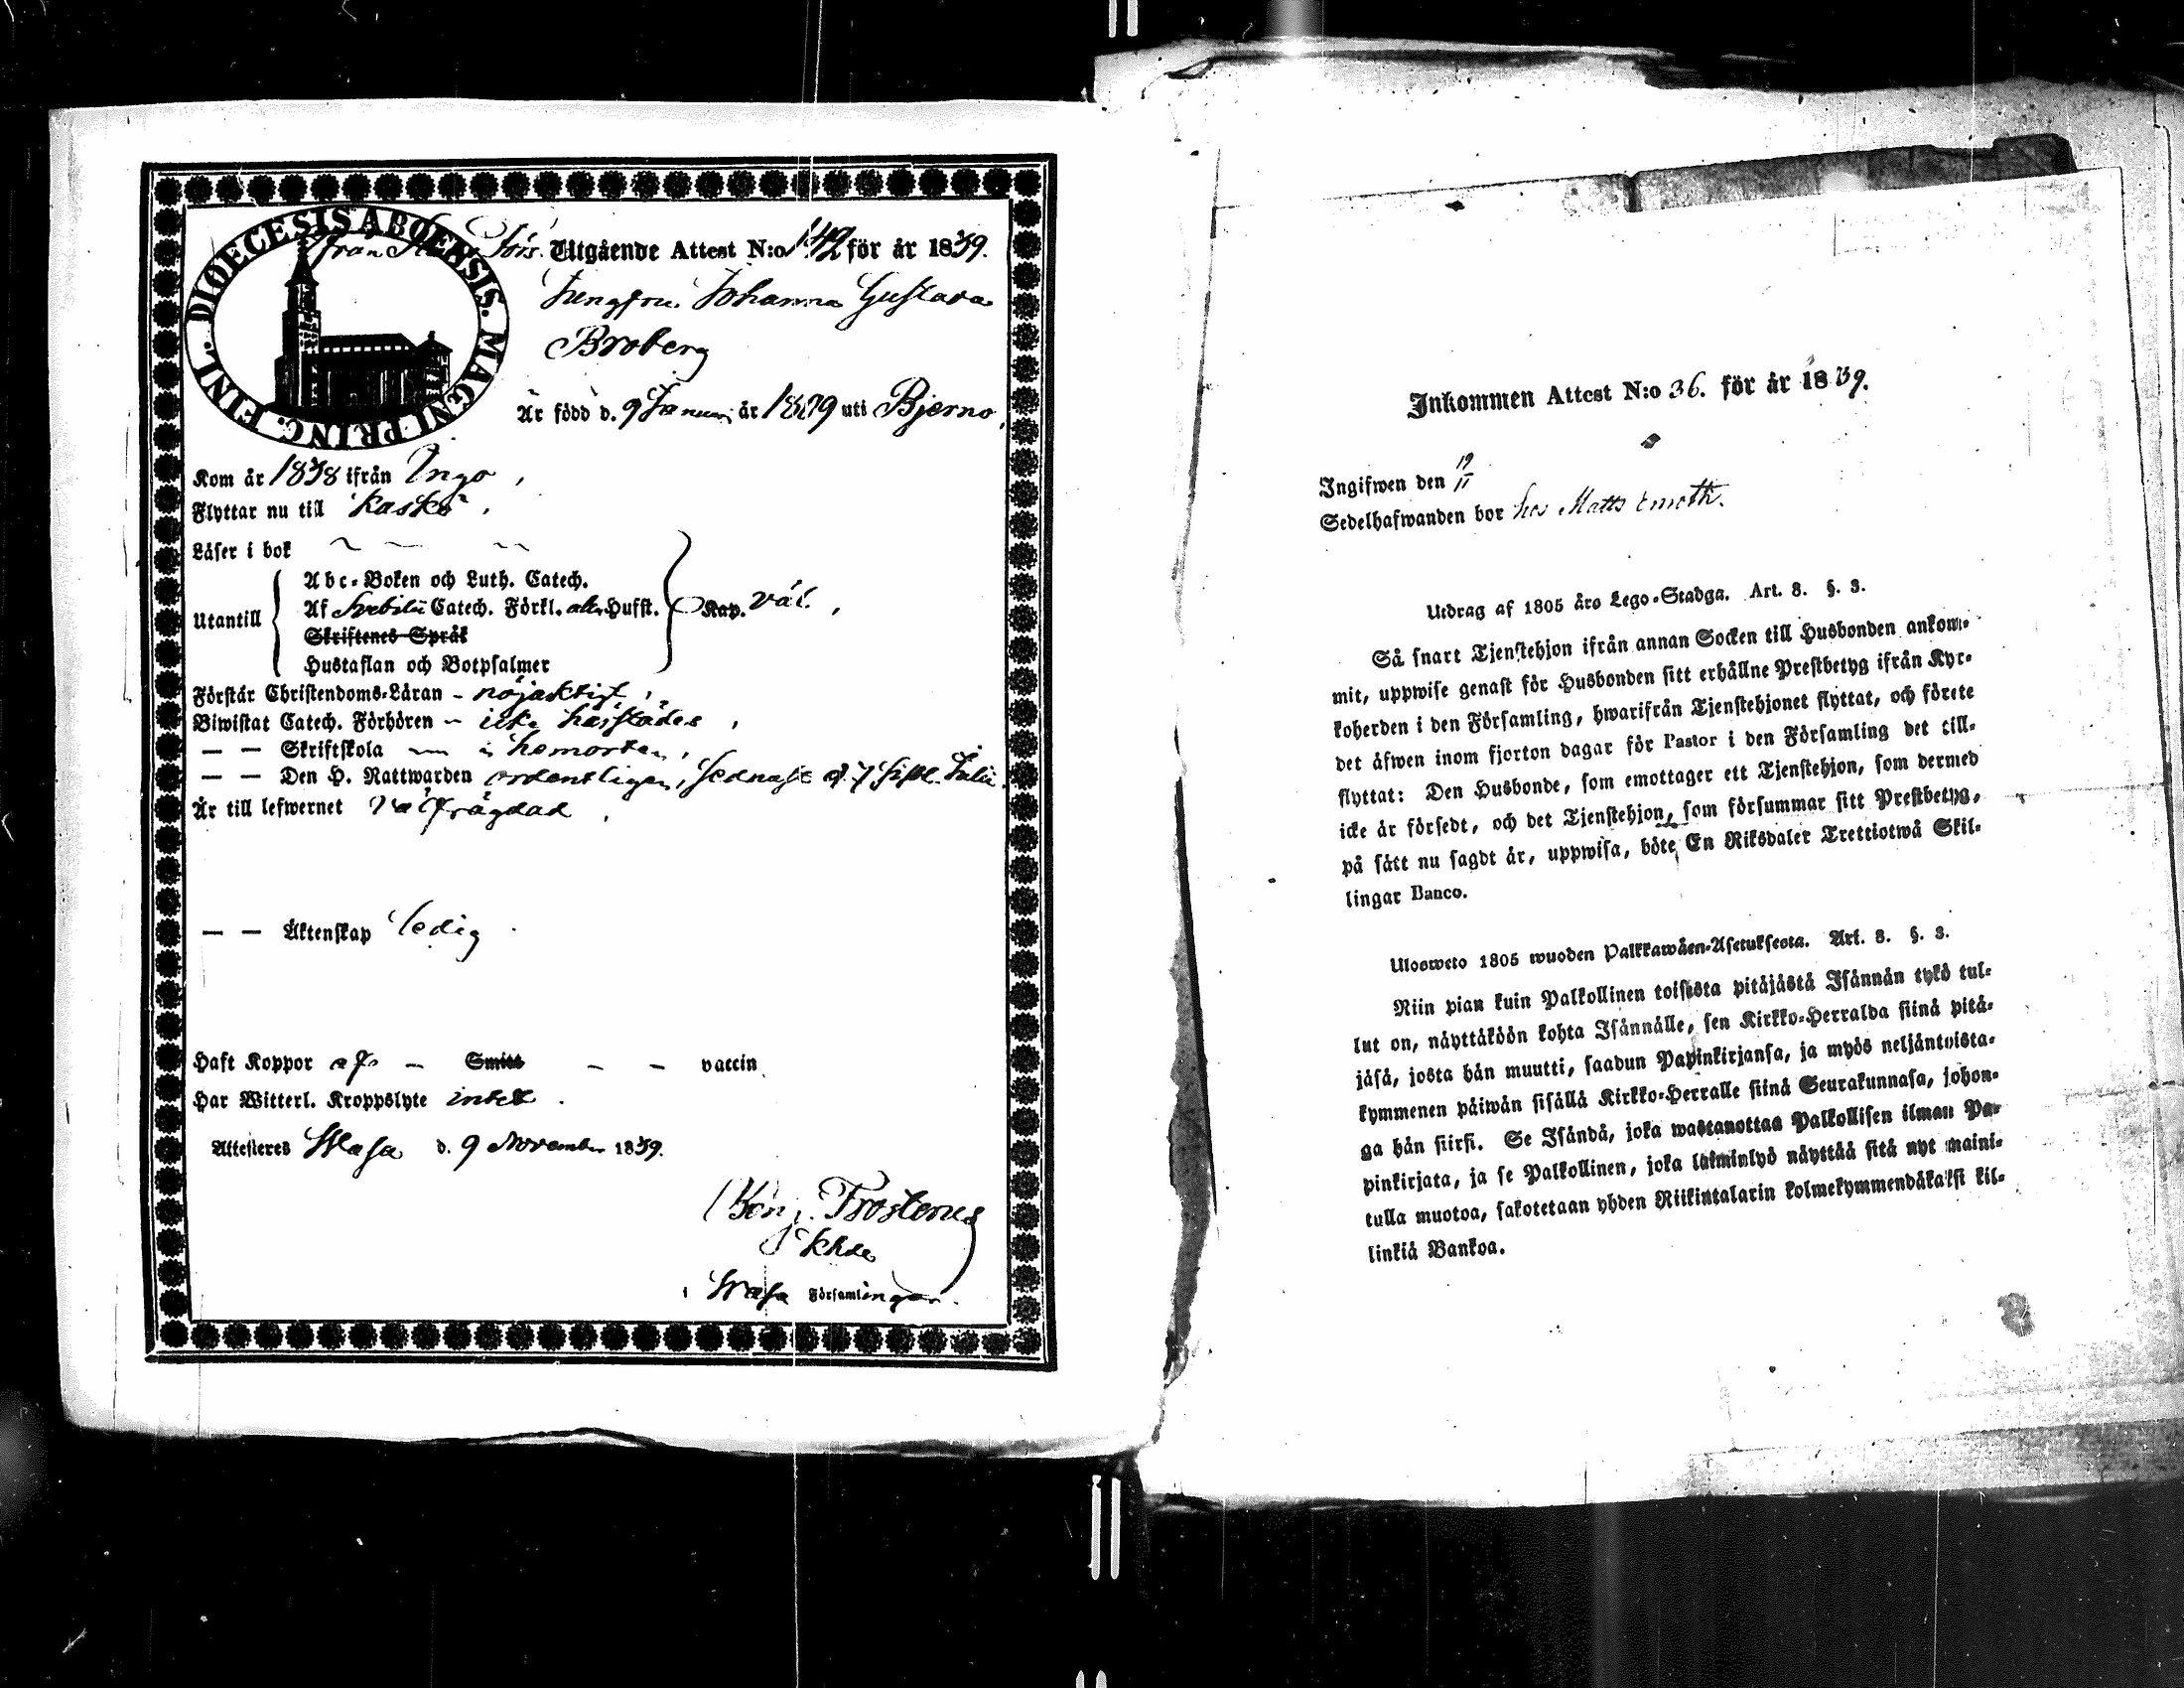 DIOECESIS ABOENSIS. MAGNI PRINC. FINL.
från Förs. Utgående Attest N:o 142 för år 1839.
Jungfru Johanna Gustava
Broberg
Är född d. 9 Januari år 1809 uti Bjerno,
Kom år 1838 ifrån Ingo,
Flyttar nu till Kaskö,
Läser i bok
Utantill
Abc-Boken och Luth. Catech.
Af Svebilii Catech. Förkl. Husst. Kap. väl,
Skriftenes Språk
Hustaflan och Botpsalmer
Förstår Christendoms-Läran - nöjaktigt,
Biwistat Catech. Förhören - icke härstädes,
— — Skriftskola i hemorten,
— — Den H. Nattwarden ordentligen, sednast d. 7 sistl. Julii.
Är till lefwernet välfrägdad,
— — Äktenskap ledig.
Haft Koppor af - Smitt - - vaccin
Har Witterl. Kroppslyte intet.
Attesteres Wasa d. 9 November 1839.
Benj. Frosterus
Khde
i Wasa Församlingar.
Inkommen Attest N:o 36. för år 1839.
Ingifwen den 19/11
Sedelhafwanden bor hos Matts
Utdrag af 1805 års Lego-Stadga. Art. 8. §. 3.
Så snart Tjenstehjon ifrån annan Socken till Husbonden ankom-
mit, uppwise genast för Husbonden sitt erhållne Prestbetyg ifrån Kyr-
koherden i den Församling, hwarifrån Tjenstehjonet flyttat, och förete
det äfwen inom fjorton dagar för Pastor i den Församling det till-
flyttat: Den Husbonde, som emottager ett Tjenstehjon, som dermed
icke är försedt, och det Tjenstehjon, som försummar sitt Prestbetyg,
på sätt nu sagdt är, uppwisa, böte En Riksdaler Trettiotwå Skil-
lingar Banco.
Ulosweto 1805 wuoden Palkkawäen-Asetuksesta. Art. 8. §. 3.
Niin pian kuin Palkollinen toisesta pitäjästä Isännän tykö tul-
lut on, näyttäköön kohta Isännälle, sen Kirkko-Herralda siinä pitä-
jäsä, josta hän muutti, saadun Papinkirjansa, ja myös neljäntoista-
kymmenen päiwän sisällä Kirkko-Herralle siinä Seurakunnasa, johon-
ga hän siirsi. Se Isändä, joka wastanottaa Palkollisen ilman Pa-
pinkirjata, ja se Palkollinen, joka laiminlyö näyttää sitä nyt maini-
tulla muotoa, sakotetaan yhden Riikintalarin kolmekymmendäkaksi kil-
linkiä Bankoa.